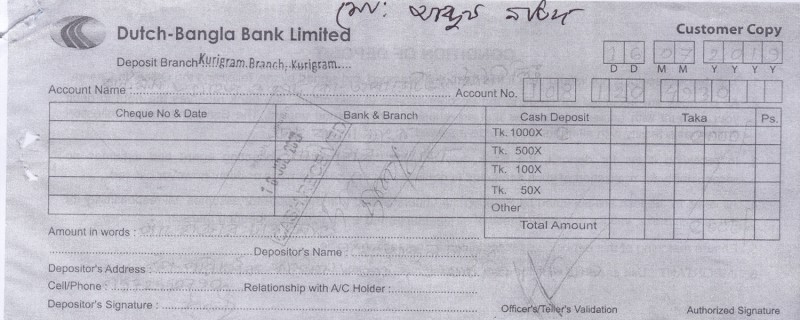 মোঃ
Dutch-Bangla Bank Limited
Customer Copy
Deposit Branch Kurigram Branch, Kurigram....
16 07 2019
D D M M Y Y Y Y
Account Name : Account No.
Cheque No & Date Bank & Branch Cash Deposit Taka Ps.
Tk. 1000X
Tk. 500X
Tk. 100X
Tk. 50X
Other
Total Amount
CASH RECEIVED
Amount in words :
Depositor's Name :
Depositor's Address :
Cell/Phone : Relationship with A/C Holder :
Depositor's Signature : Officer's/Teller's Validation Authorized Signature